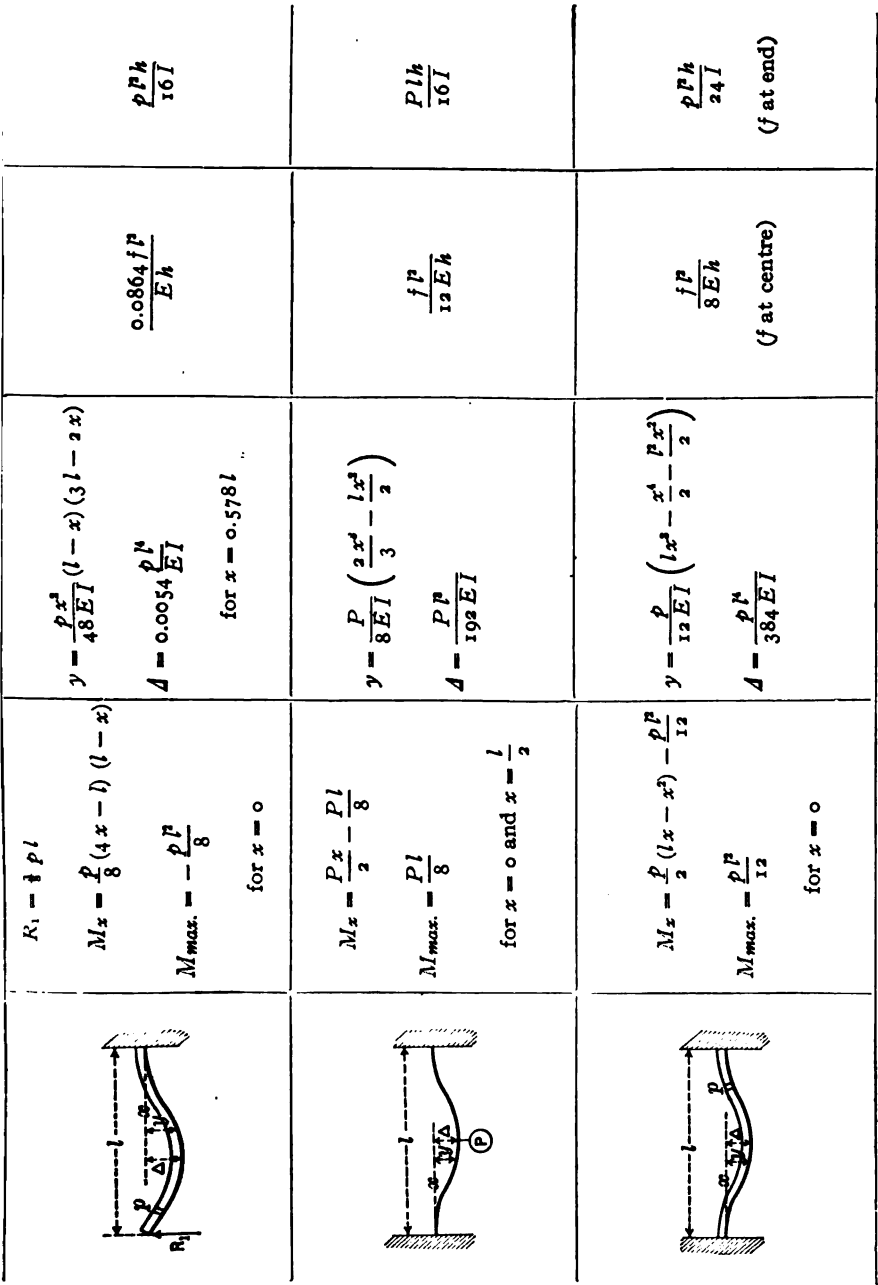 l
p
Δ
y
x
R₁
R₁ = ⅜ p l
Mx = p/8 (4x − l) (l − x)
Mmax. = − pl²/8
for x = 0
y = px²/48EI (l − x) (3l − 2x)
Δ = 0.0054 pl⁴/EI
for x = 0.578 l
0.0864 f l²/Eh
p l² h/16 I
l
x
y
Δ
P
Mx = Px/2 − Pl/8
Mmax. = Pl/8
for x = 0 and x = l/2
y = P/8EI (2x³/3 − lx²/2)
Δ = Pl³/192 EI
f l²/12 E h
P l h/16 I
l
x
y
Δ
p
Mx = p/2 (lx − x²) − pl²/12
Mmax. = pl²/12
for x = 0
y = p/12EI (lx³ − x⁴/2 − l²x²/2)
Δ = p l⁴/384 EI
f l²/8 E h
(f at centre)
p l² h/24 I
(f at end)